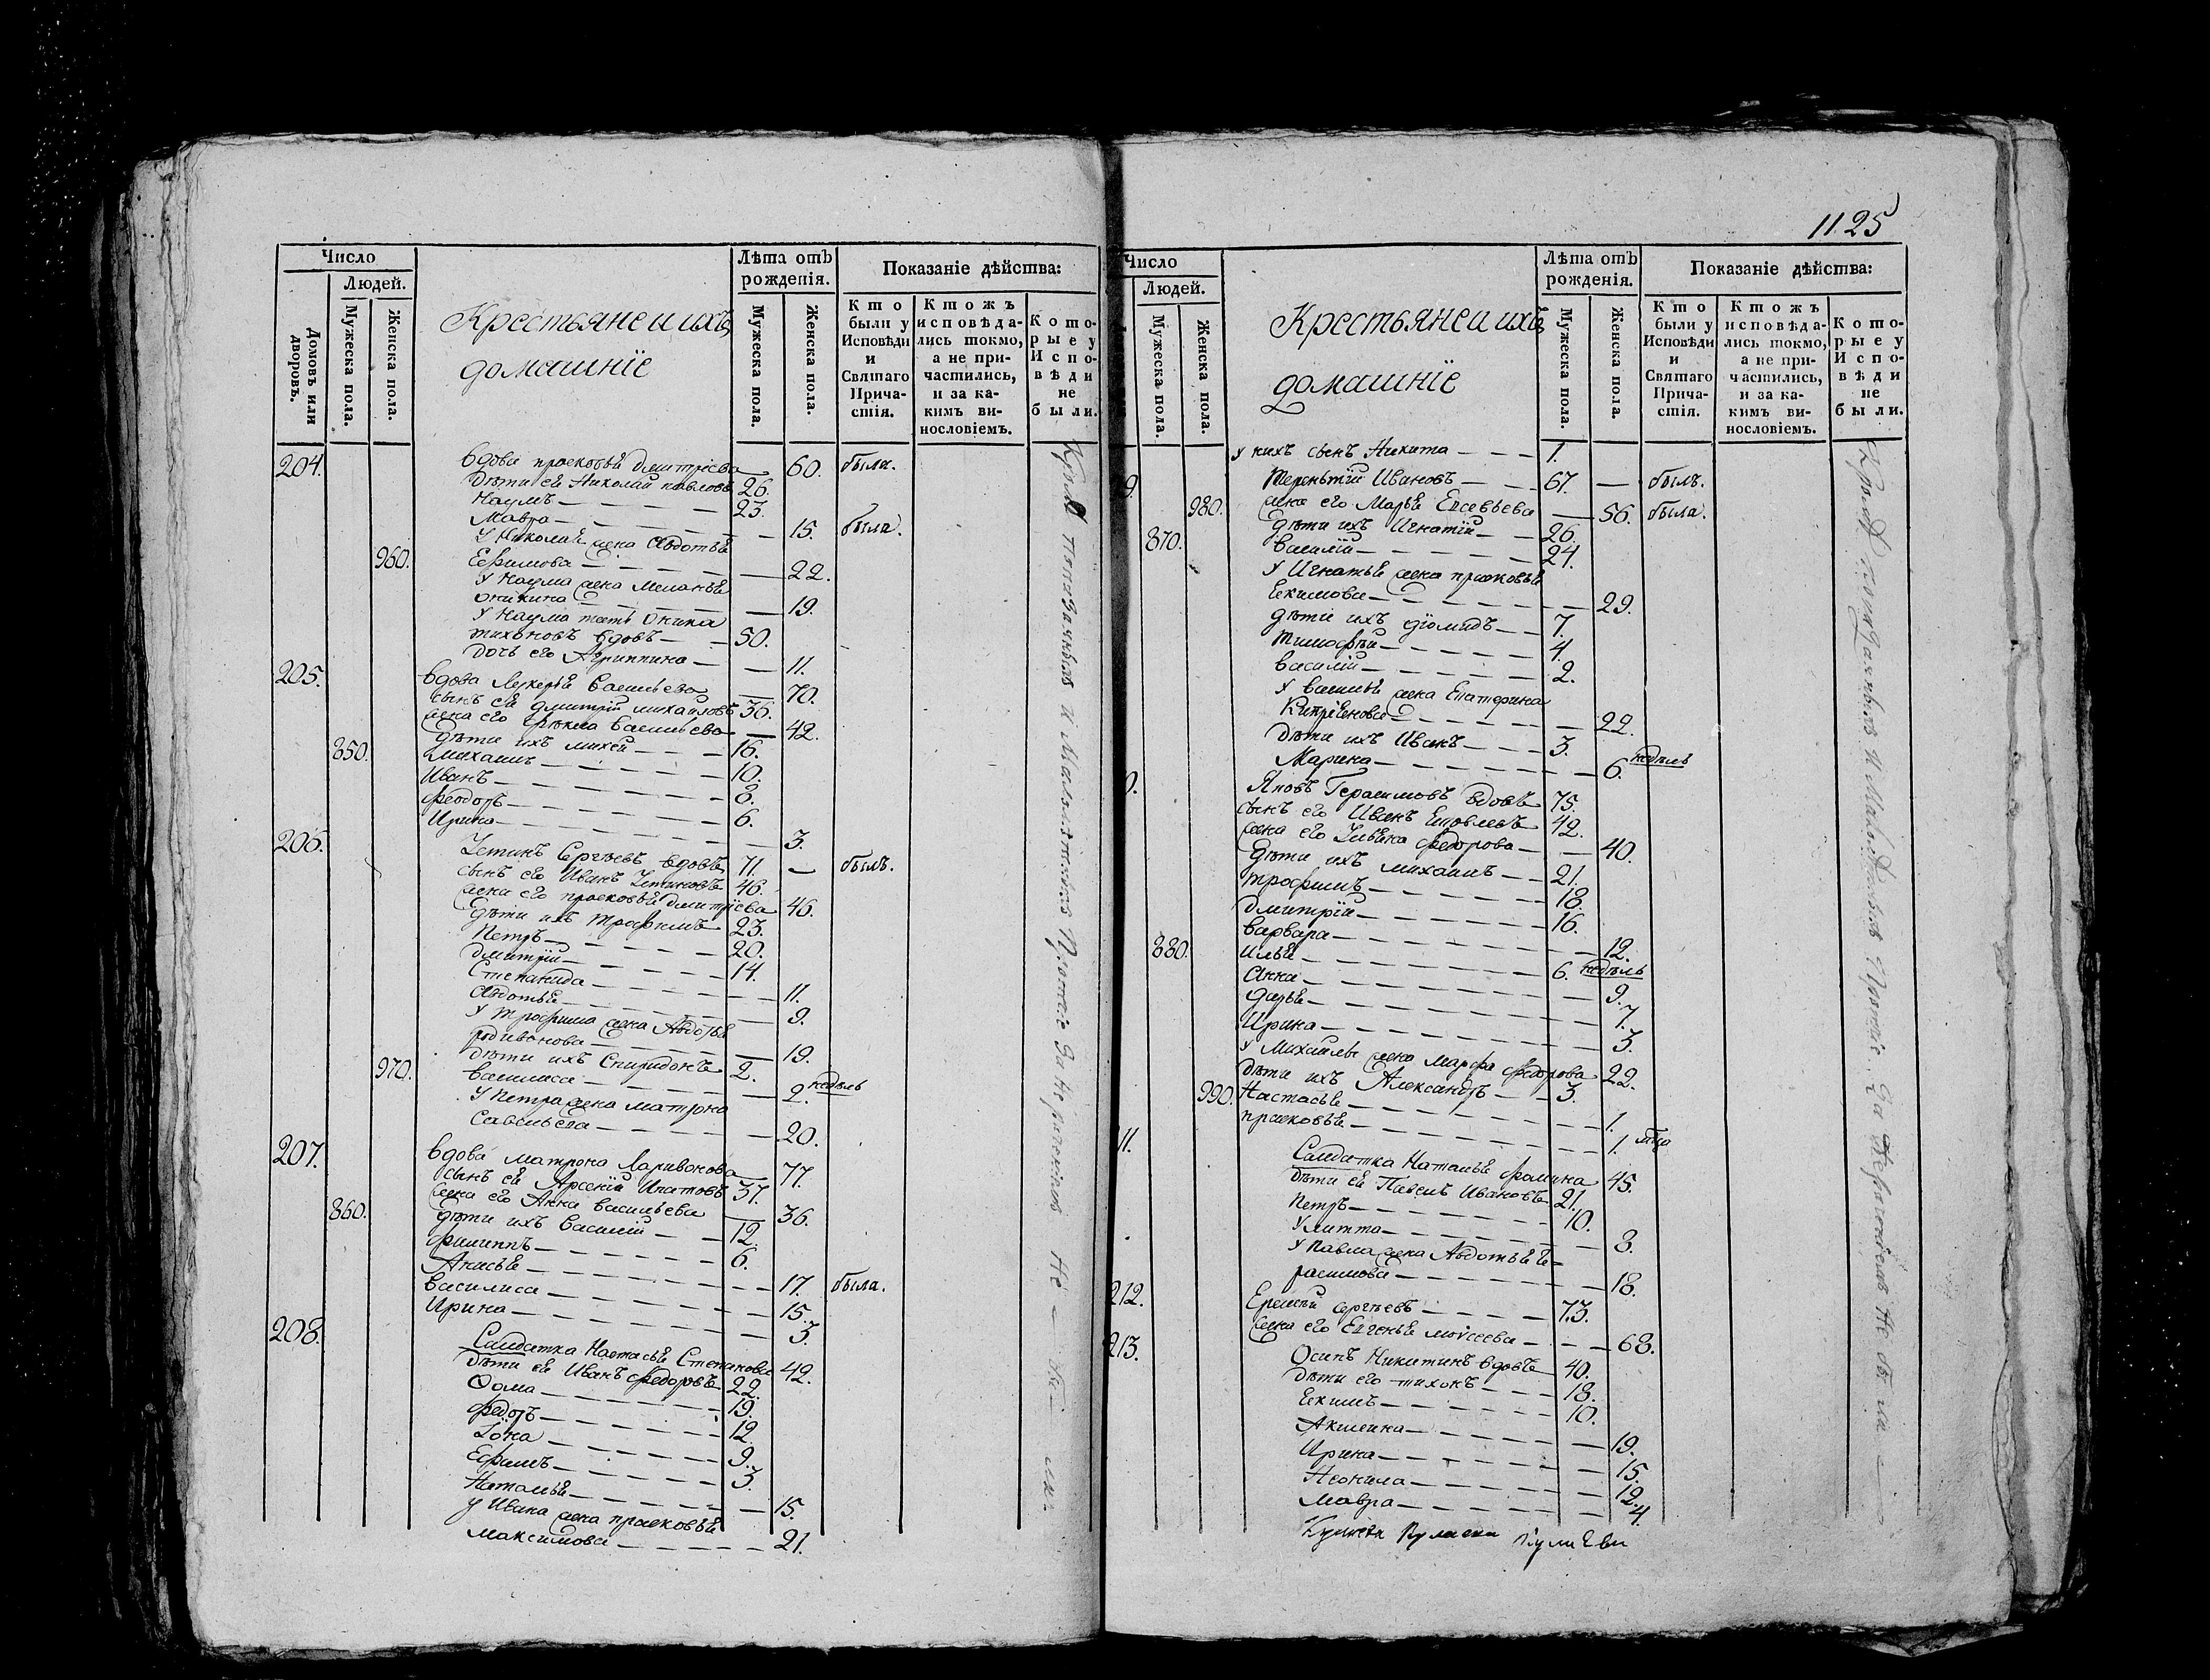 1125
Число
Людей.
Домовъ или дворовъ.
Мужеска пола.
Женска пола.
Крестьяне и ихъ
домашніе
Лѣта отъ
рожденія.
Мужеска пола.
Женска пола.
Показаніе дѣйства:
Кто были у Исповѣди и Святаго Причастія.
Ктожъ исповѣдались токмо, а не причастились, и за какимъ винословіемъ.
Которые у Исповѣди не были.
204. вдова прасковья Дмитріева — 60. была.
Дѣти ея Николай павловъ 26.
Наумъ — 23.
Мавра — 15. была.
У Николая жена Авдотья
960. Ефимова — 22.
У Наума жена Меланья
оникина — 19.
У Наума тесть Оника
тихоновъ вдовъ — 50.
Дочь его Агриппина — 11.
205. вдова Лукерья Васильева — 70.
сынъ ея Дмитрій михайловъ 36.
жена его Васильева — 42.
850. дѣти ихъ михей — 16.
Михаилъ — 10.
Иванъ — 8.
Феодоръ — 6.
Ирина — 3.
206. Устинъ Сергѣевъ вдовъ 71. — былъ.
сынъ его Иванъ Устиновъ 46.
жена его прасковья дмитріева 46.
дѣти ихъ Трофимъ 23.
Петръ — 20.
Дмитрій — 14.
Степанида — 11.
Авдотья — 9.
У Трофима жена Авдотья
родивонова — 19.
дѣти ихъ Спиридонъ 2.
970. Василиса — 2. недѣль
У Петра жена матрона
Савельева — 20.
207. вдова матрона Ларивонова — 77.
сынъ ея Арсеній Ипатовъ 37.
жена его Анна васильева — 36.
860. дѣти ихъ Василій — 12.
Филиппъ — 6.
Анисья — 17. была.
Василиса — 15.
Ирина — 3.
208. Салдатка Настасья Степанова 42.
дѣти ея Иванъ Федоровъ 22.
Фома — 19.
Федоръ — 12.
Iона — 9.
Ефимъ — 3.
Наталья — 15.
У Ивана жена прасковья
Максимова — 21.
Число
Людей.
Мужеска пола.
Женска пола.
Крестьяне и ихъ
домашніе
Лѣта отъ
рожденія.
Мужеска пола.
Женска пола.
Показаніе дѣйства:
Кто были у Исповѣди и Святаго Причастія.
Ктожъ исповѣдались токмо, а не причастились, и за какимъ винословіемъ.
Которые у Исповѣди не были.
у нихъ сынъ Никита — 1.
9. Терентій Ивановъ — 67. — былъ.
980. жена его Марья Евсевьева — 56. была.
дѣти ихъ Игнатій — 26.
870. Василій — 24.
У Игнатья жена прасковья
Екимова — 29.
дѣти ихъ Діомидъ — 7.
Тимофей — 4.
Василій — 2.
У васильи жена Екатерина
— 22.
дѣти ихъ Иванъ — 3.
Марина — 6. недѣль
0. Яковъ Герасимовъ вдовъ 75.
сынъ его Иванъ Яковлевъ 42.
жена его Ульяна федорова — 40.
дѣти ихъ михаилъ — 21.
Трофимъ — 18.
Дмитрій — 16.
Варвара — 12.
880. Илья — 6. недѣль
Анна — 9.
Дарья — 7.
Ирина — 3.
У Михайлы жена Марфа федорова 22.
дѣти ихъ Александръ — 3.
990. Настасья — 1.
прасковья — 1. мца
11. Салдатка Наталья Фомина 45.
дѣти ея Павелъ Ивановъ 21.
Петръ — 10.
Улитта — 8.
У павла жена Авдотья Ге-
расимова — 18.
212. Еремей сергѣевъ — 73.
жена его Евгенья моисеева — 68.
213. Осипъ Никитинъ вдовъ 40.
дѣти его тихонъ — 18.
Екимъ — 10.
Акилина — 19.
Ирина — 15.
Неонила — 12.
Мавра — 4.